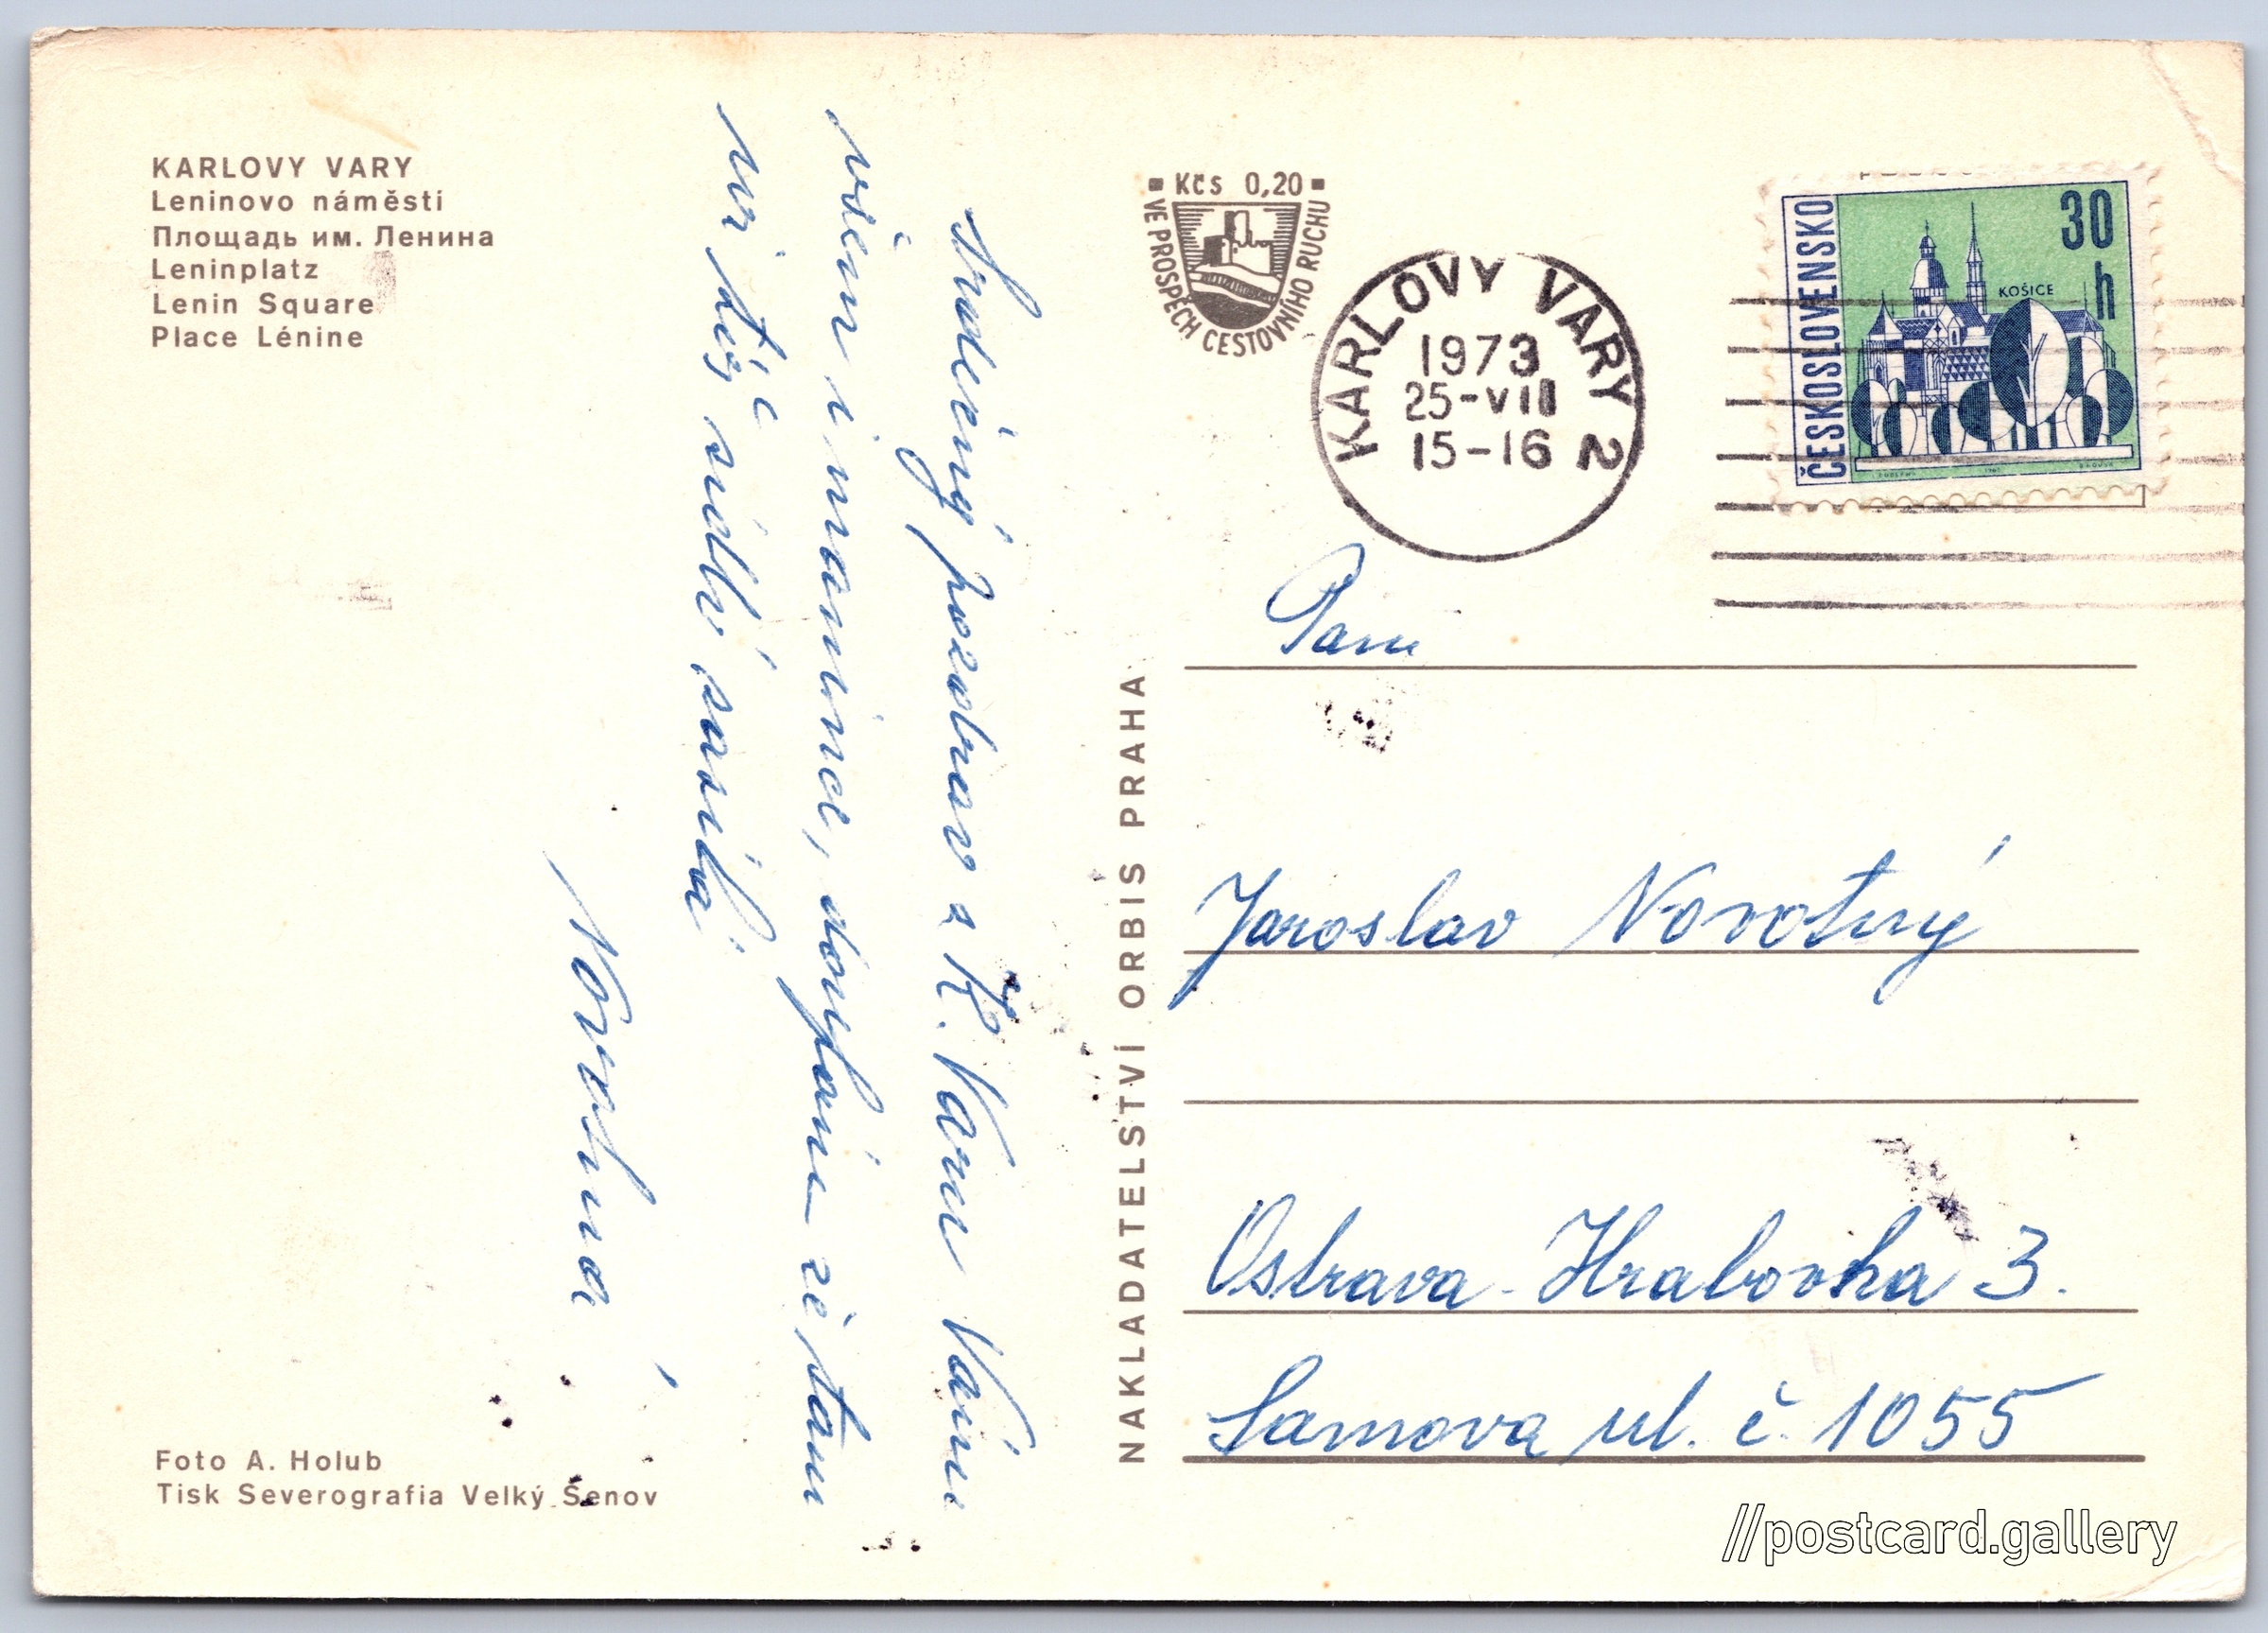 KARLOVY VARY
Leninovo náměstí
Площадь им. Ленина
Leninplatz
Lenin Square
Place Lénine
Srdečný pozdrav z K. Varu Vám
všem i mamince, doufám že tam
již
Novotná
Foto A. Holub
Tisk Severografia Velký Šenov
NAKLADATELSTVÍ ORBIS PRAHA
Kčs 0,20
VE PROSPĚCH CESTOVNÍHO RUCHU
KARLOVY VARY 2
1973
25-VII
15-16
ČESKOSLOVENSKO
30 h
KOŠICE
Pan
Jaroslav Novotný
Ostrava-Hrabovka 3.
Samova ul. č. 1055
//postcard.gallery